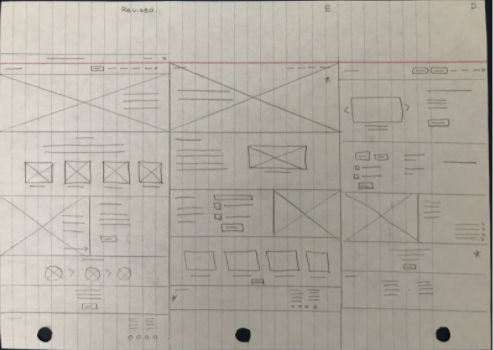 Revised
E
D